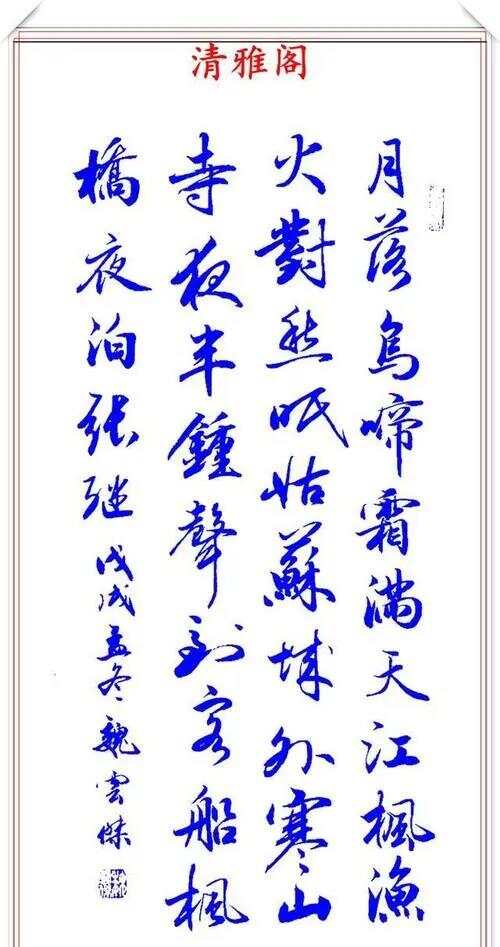 清雅阁
月落烏啼霜满天江楓漁
火對愁眠姑蘇城外寒山
寺夜半鍾聲到客船楓
橋夜泊张继戊戌孟冬魏雲傑